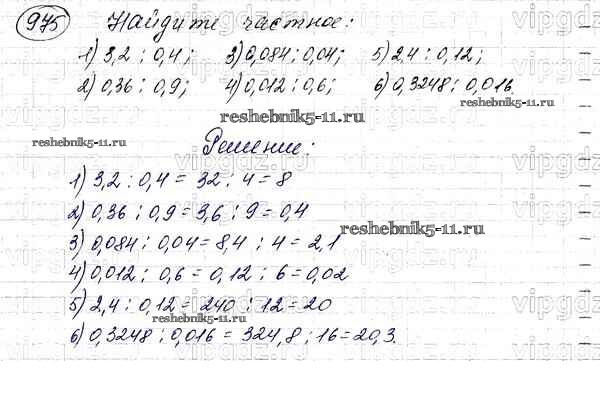 975 Найдите частное:
1) 3,2 : 0,4; 3) 0,084 : 0,04; 5) 2,4 : 0,12;
2) 0,36 : 0,9; 4) 0,012 : 0,6; 6) 0,3248 : 0,016.
reshebnik5-11.ru
reshebnik5-11.ru
reshebnik5-11.ru
Решение:
1) 3,2 : 0,4 = 32 : 4 = 8
2) 0,36 : 0,9 = 3,6 : 9 = 0,4
reshebnik5-11.ru
3) 0,084 : 0,04 = 8,4 : 4 = 2,1
4) 0,012 : 0,6 = 0,12 : 6 = 0,02
5) 2,4 : 0,12 = 240 : 12 = 20
reshebnik5-11.ru
6) 0,3248 : 0,016 = 324,8 : 16 = 20,3.